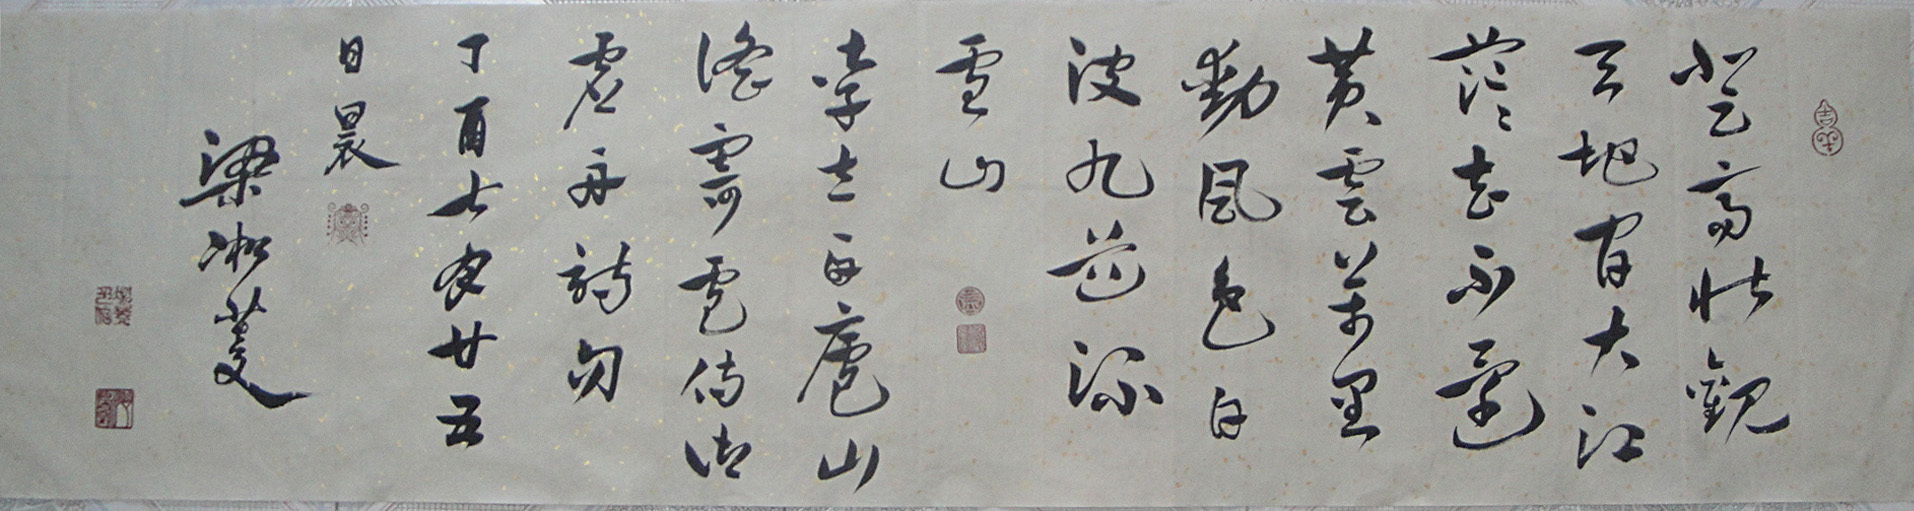 吉羊
登高壯觀
天地間大江
茫茫去不還
黄雲萬里
動風色白
波九道流
雪山
李太白廬山
謠寄盧侍御
虛舟詩句
丁酉七月廿五
日晨
梁菱